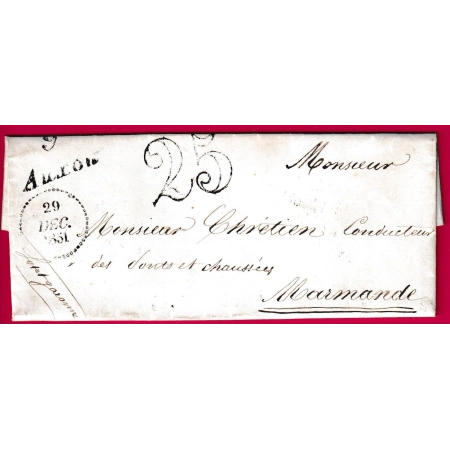 9
AILLON
25
29
DEC.
1851
Monsieur
Monsieur Chrétien Conducteur
des Ponts et chaussées
Marmande
Lot et garonne